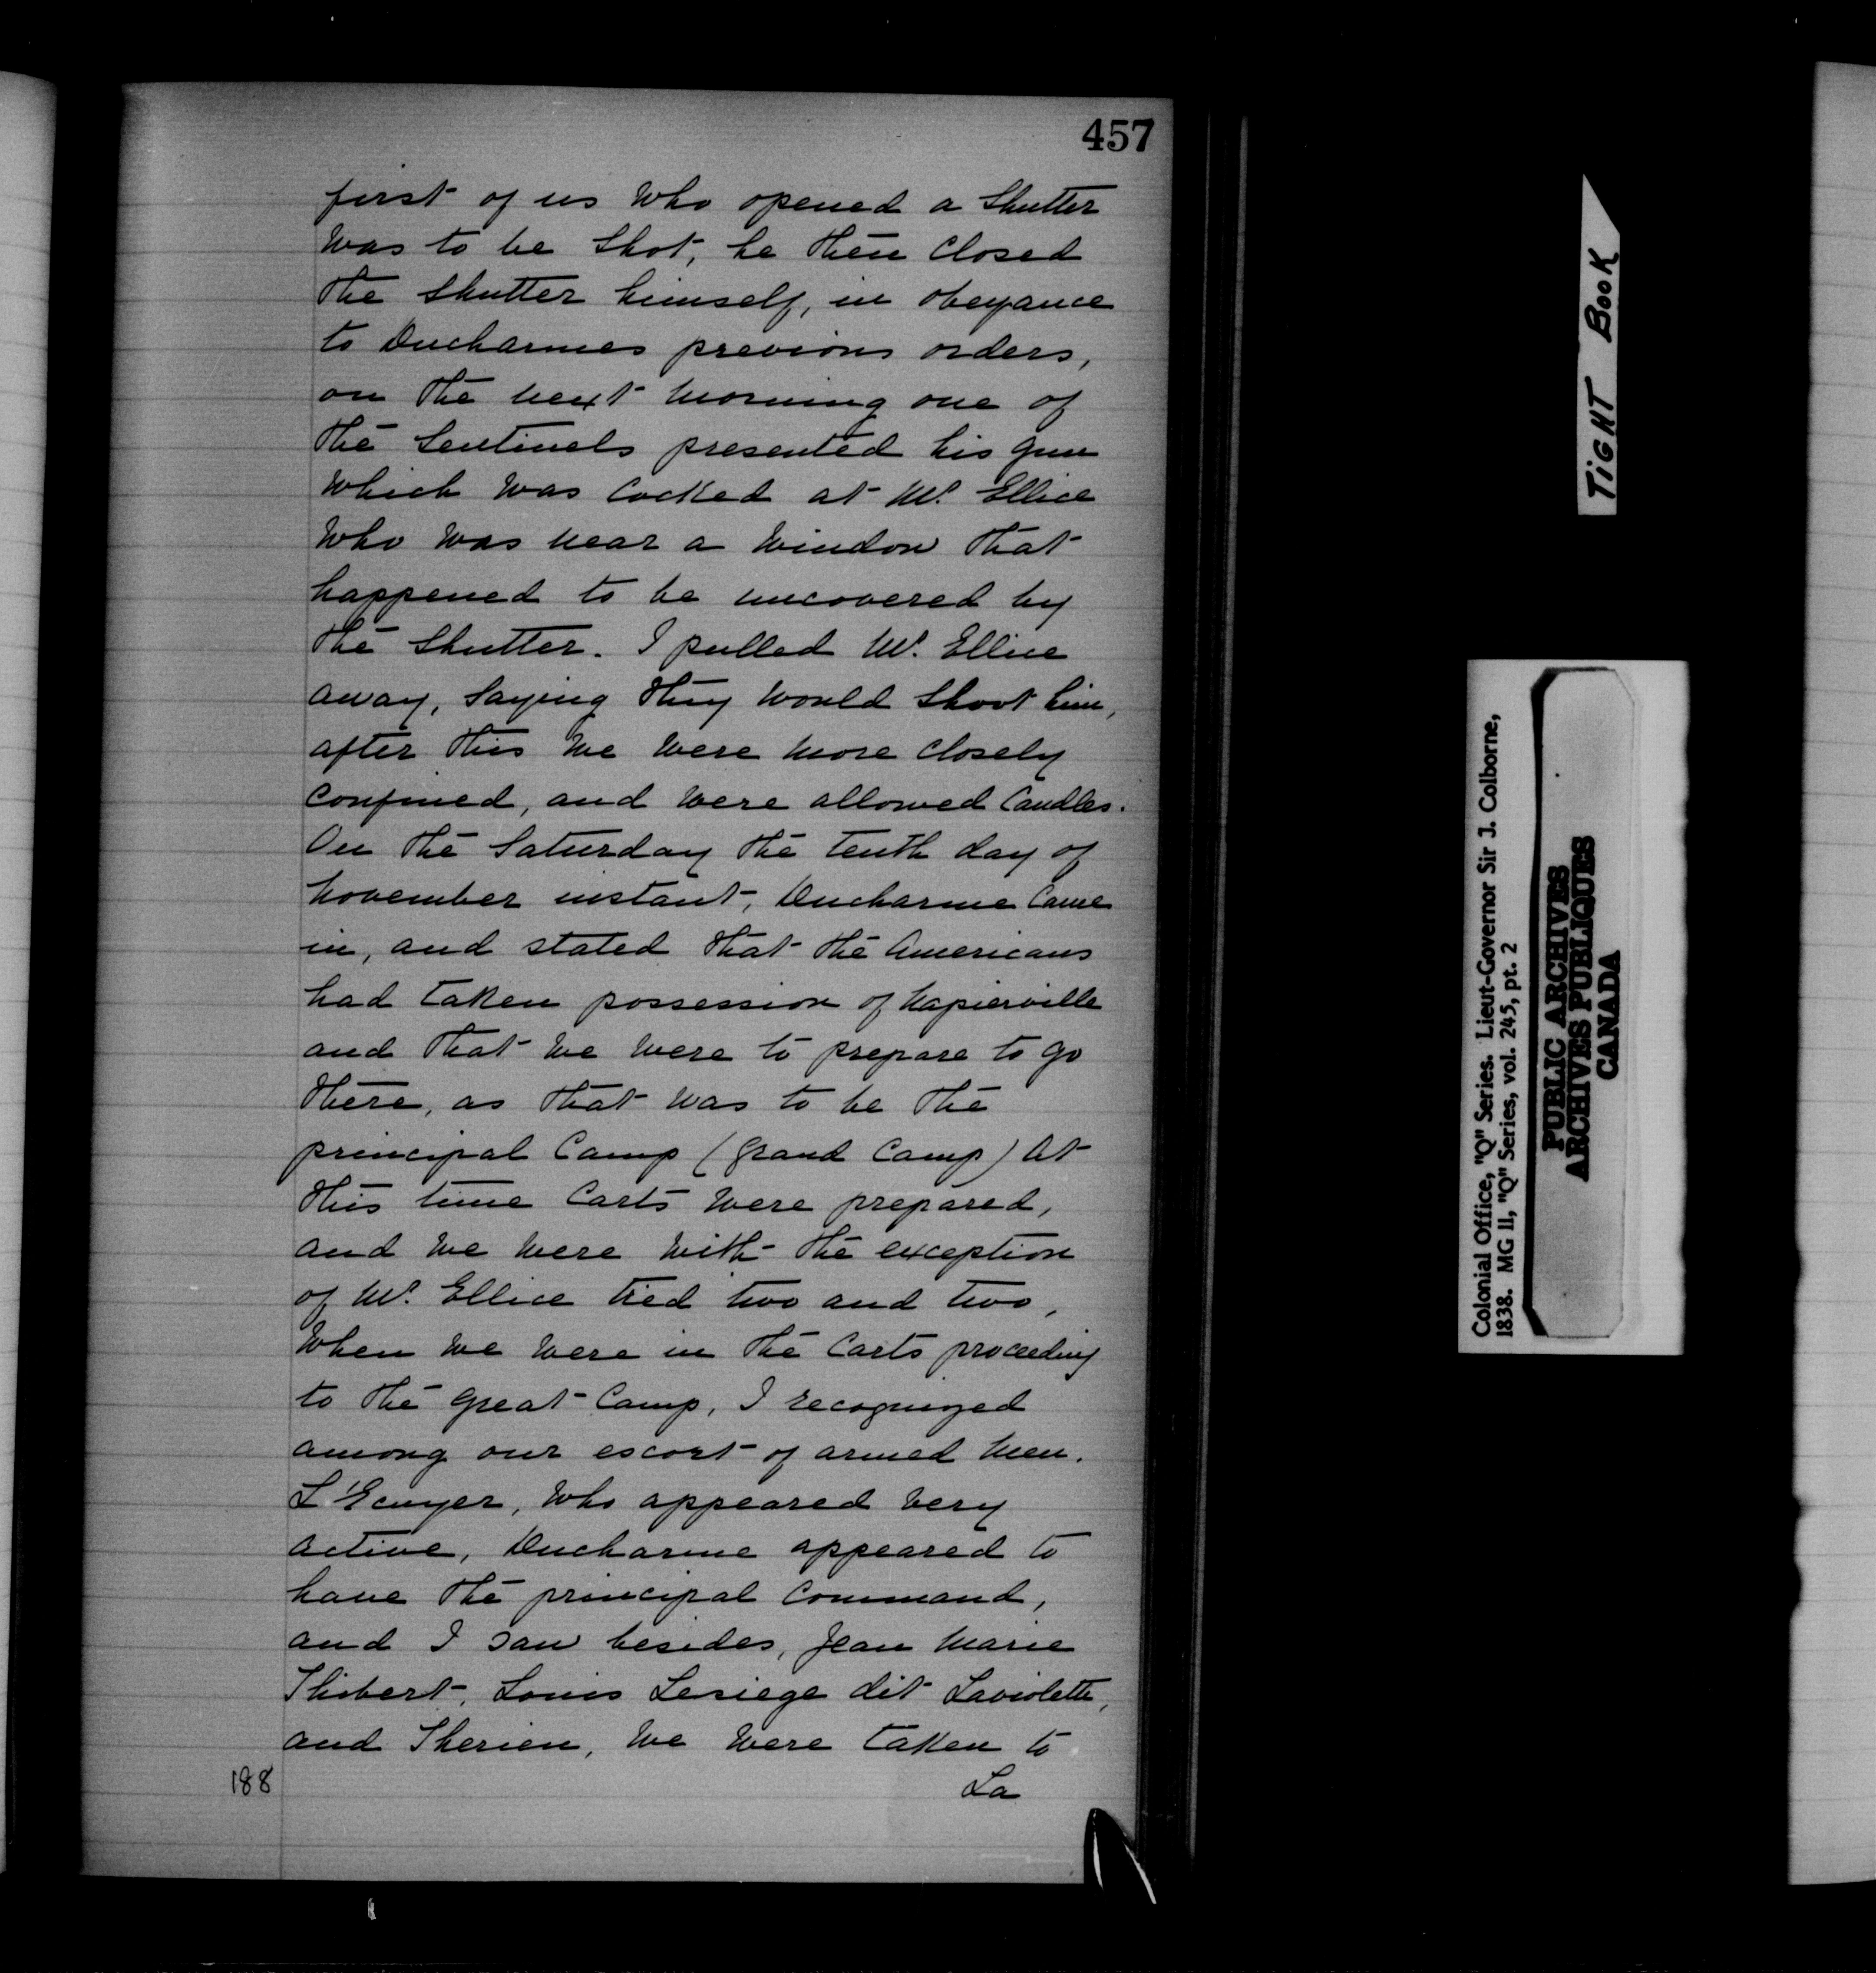 457
first of us who opened a shutter
was to be shot, he then closed
the shutter himself, in obeyance
to Ducharmes previous orders,
on the next morning one of
the sentinels presented his gun
which was cocked at Mr. Ellice
who was near a window that
happened to be uncovered by
the shutter. I pulled Mr. Ellice
away, saying they would shoot him,
after this we were more closely
confined, and were allowed candles.
On the Saturday the tenth day of
November instant, Ducharme came
in, and stated that the Americans
had taken possession of Napierville
and that we were to prepare to go
there, as that was to be the
principal Camp (Grand Camp) At
this time Carts were prepared,
and we were with the exception
of Mr. Ellice tied two and two,
when we were in the Carts proceeding
to the great Camp, I recognized
among our escort of armed men.
L'Ecuyer, who appeared very
active, Ducharme appeared to
have the principal command,
and I saw besides, Jean Marie
Thibert, Louis Lesiege dit Laviolette,
and Therien, we were taken to
La
188
TIGHT BOOK
Colonial Office, "Q" Series. Lieut-Governor Sir J. Colborne,
1838. MG 11, "Q" Series, vol. 245, pt. 2
PUBLIC ARCHIVES
ARCHIVES PUBLIQUES
CANADA